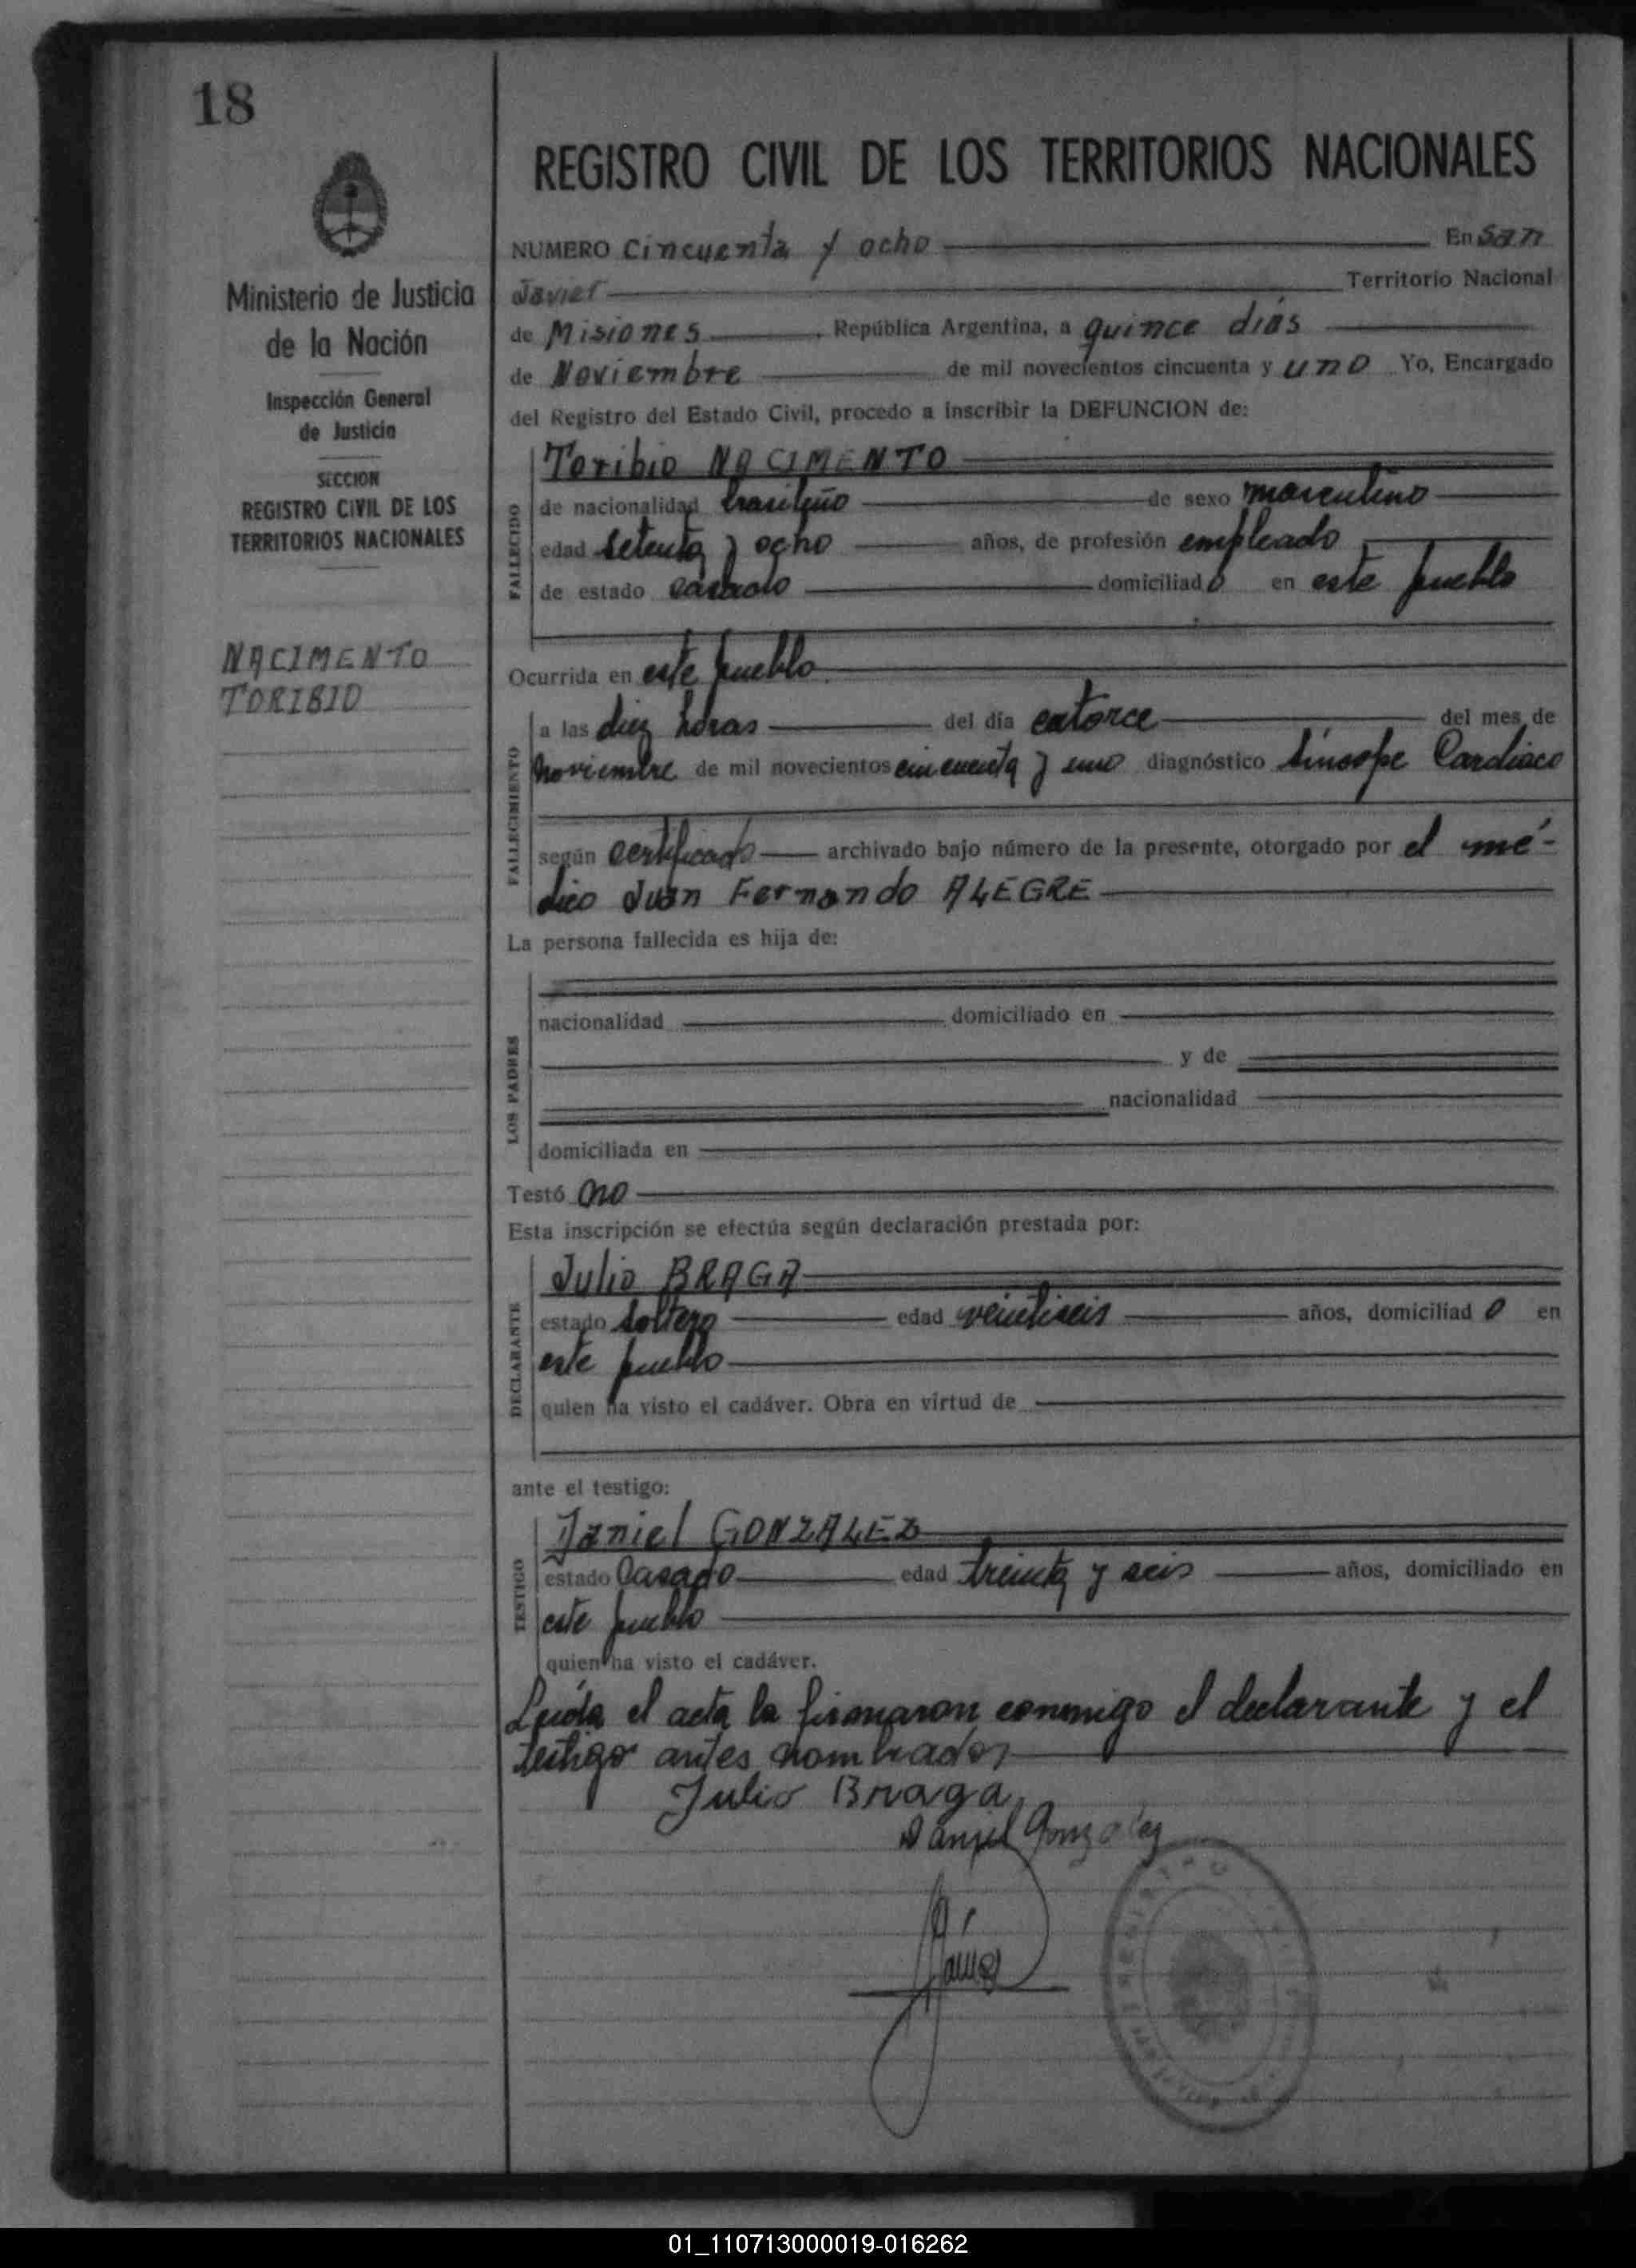 18
Ministerio de Justicia
de la Nación
Inspección General
de Justicia
SECCION
REGISTRO CIVIL DE LOS
TERRITORIOS NACIONALES
NACIMENTO
TORIBIO
REGISTRO CIVIL DE LOS TERRITORIOS NACIONALES
NUMERO Cincuenta y ocho En San
Javier Territorio Nacional
de Misiones, República Argentina, a quince días
de Noviembre de mil novecientos cincuenta y uno Yo, Encargado
del Registro del Estado Civil, procedo a inscribir la DEFUNCION de:
FALLECIDO
Toribio NACIMENTO
de nacionalidad brasileño de sexo masculino
edad setenta y ocho años, de profesión empleado
de estado casado domiciliado en este pueblo
Ocurrida en este pueblo
FALLECIMIENTO
a las diez horas del día catorce del mes de
noviembre de mil novecientos cincuenta y uno diagnóstico Síncope Cardiaco
según certificado archivado bajo número de la presente, otorgado por el mé-
dico Juan Fernando ALEGRE
La persona fallecida es hija de:
LOS PADRES
nacionalidad domiciliado en
y de
nacionalidad
domiciliada en
Testó no
Esta inscripción se efectúa según declaración prestada por:
DECLARANTE
Julio BRAGA
estado soltero edad veintiseis años, domiciliado en
este pueblo
quien ha visto el cadáver. Obra en virtud de
ante el testigo:
TESTIGO
Daniel GONZALEZ
estado Casado edad treinta y seis años, domiciliado en
este pueblo
quien ha visto el cadáver.
Leída el acta la firmaron conmigo el declarante y el
testigo antes nombrados
Julio Braga
Daniel Gonzalez
REGISTRO
01_110713000019-016262